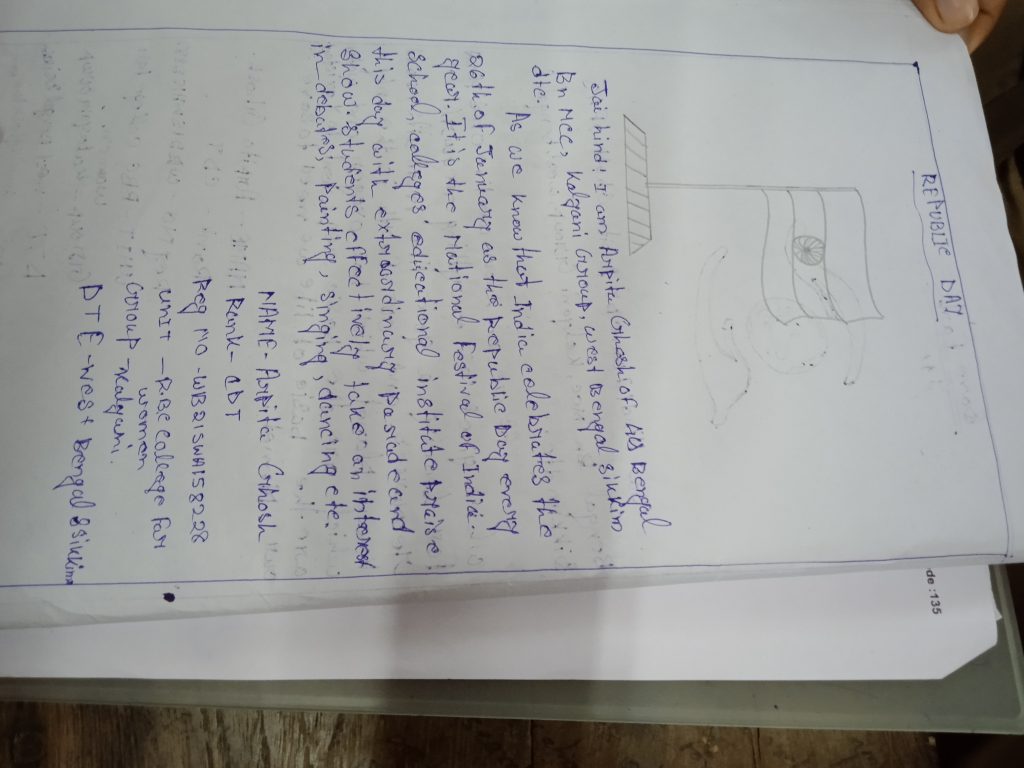 REPUBLIC DAY
Jai hind! I am Arpita Ghosh of 48 Bengal
Bn NCC, Kalyani Group, West Bengal Sikkim
dte.
As we know that India celebraties the
26th of January as the Republic Day every
year. It is the National Festival of India.
School, colleges' educational institate
this day with extraordinary parade and
show. Students effectively take an interest
in debates, painting, singing, dancing etc.
NAME- Arpita Ghosh
Rank- CDT
Reg NO - WB21SWA158228
UNIT - RBC College For
women
Group - Kalyani.
DTE - West Bengal Sikkim
de :135